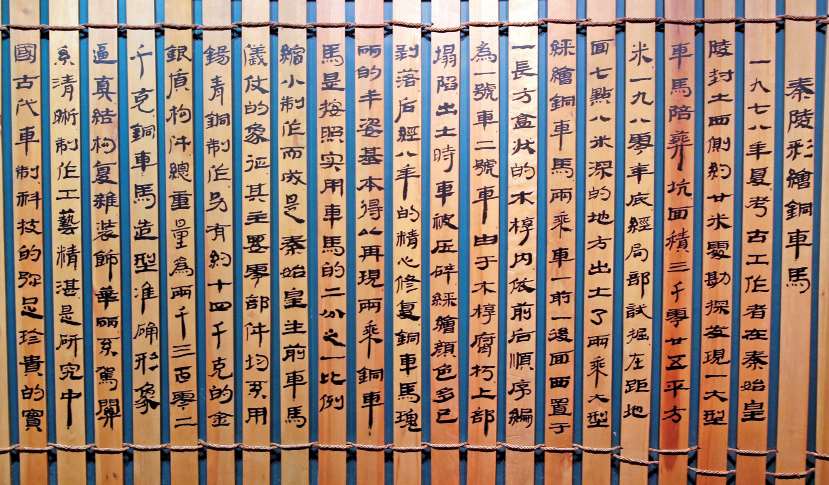 秦陵彩繪銅車馬
一九七八年夏考古工作者在秦始皇
陵封土西側約廿米處勘探發現一大型
車馬陪葬坑面積三千零廿五平方
米一九八零年底經局部試掘在距地
面七點八米深的地方出土了兩乘大型
綵繪銅車馬兩乘車一前一後面西置于
一長方盒狀的木椁内依前后順序編
為一號車二號車由于木椁腐朽上部
塌陷出土時車被压碎綵繪顏色多已
剥落后經八年的精心修复銅車馬瑰
丽的丰姿基本得以再現兩乘銅車
馬是按照实用車馬的二分之一比例
縮小制作而成是秦始皇生前車馬
儀仗的象征其主要零部件均系用
錫青銅制作另有約十四千克的金
銀質构件總重量為兩千三百零二
千克銅車馬造型准确形象
逼真結构复雜裝飾華丽系駕關
系清晰制作工藝精湛是研究中
國古代車制科技的弥足珍貴的實